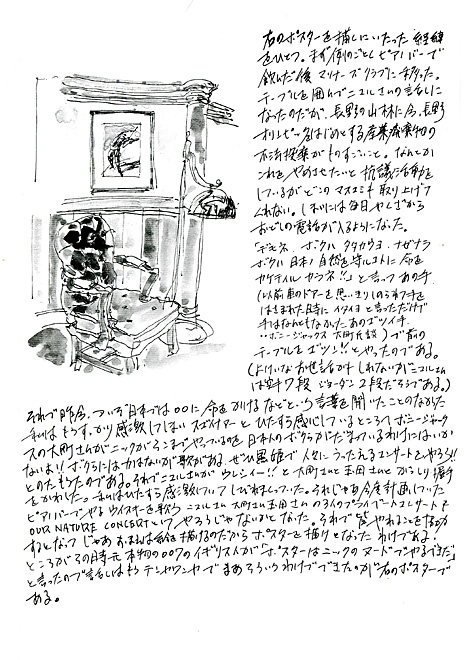 右のポスターを描くにいたった経緯
をひとつ。まず例のごとくピアノバーで
飲んだ後マリナーズクラブに移った。
テーブルを囲んでニコルさんの話しに
なったのだが、長野の山林に今、長野
オリンピックをはじめとする産業廃棄物の
不法投棄がものすごいこと。なんとか
これをやめさせたいと抗議活動を
しているがどこのマスコミも取り上げて
くれない。しまいには毎日やくざから
おどしの電話が入るようになった。
「デモネ、ボクハ タタカウヨ、ナゼナラ
ボクハ日本ノ自然を守ルコトに命を
カケテイルカラネ!!」と言ってあの手
(以前車のドアーを思いきりしめられ手を
はさまれた時に イタイヨ と言っただけで
手はなんともなかったあのゴツイ手
‥ボニージャックス 大町氏談)で前の
テーブルを ゴツン!! とやったのである。
(よけいなお世話かもしれないがニコルさん
は空手7段 ジョーダン2段だそうである。)
それで昨今、ついぞ日本では○○に命をかけるなどという言葉を聞いたことのなかった
私はもうすっかり感激してしまい
スの大町さんがニックがそこまでやっているのを日本人のボクらがだまっているわけにはいか
ないよ!! ボクらには力はないが歌がある。ぜひ黒姫で人々にうったえるコンサートをやろう!!
とのたもうたのである。それでニコルさんがウレシイー!! と大町さんと玉田さんとがっしり握手
をかわした。私はひたすら感激していてしびれまくっていた。それじゃあ今度計画していた
ピアノバーでやるウイスキーを歌う ニコルさん 大町さん玉田さんのライブプライベートコンサートも
OUR NATURE CONCERTといってやろうじゃないかとなった。それで皆やれることをなにか
するとなって じゃあおまえは絵を描けるのだからポスターを描けとなったわけである!
ところがその時元本物の007のイギリス人が「ポスターはニックのヌードでやるべきだ」
と言ったので話しはもうテンヤワンヤでまあそういうわけでできたのが右のポスターで
ある。